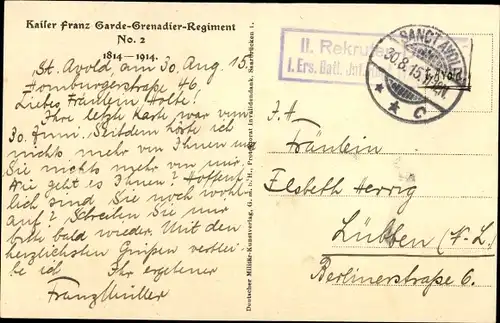 Kaiser Franz Garde-Grenadier-Regiment
No. 2
1814—1914.
St. Avold, am 30. Aug. 15.
Homburgerstraße 46
Liebes Fräulein Holte!
Ihre letzte Karte war vom
30. Juni. Seitdem hörte ich
nichts mehr von Ihnen und
Sie nichts mehr von mir.
Wie geht es Ihnen? Hoffent-
lich sind Sie noch wohl-
auf? Schreiben Sie mir
bitte bald wieder. Mit den
herzlichsten Grüßen verblei-
be ich Ihr ergebener
Franz Müller
Deutscher Militär-Kunstverlag, G. m. b. H., Protektorat in Gildendank, Saarbrücken 1.
II. Rekruten
I. Ers. Batl. Inf.
SANCT AVOLD
30.8.15
c
J. A.
Fräulein
Elsbeth Herrig
Lübben (N.-L.)
Berlinerstraße 6.